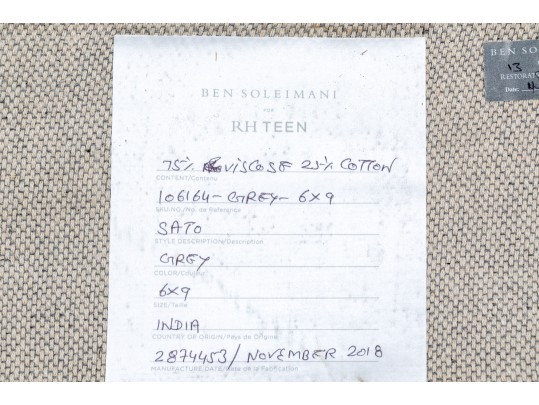 BEN SOLEIMANI
FOR
RH TEEN
75% VISCOSE 25% COTTON
CONTENT/Contenu
106164-GREY-6X9
SKU NO./No. de Reference
SATO
STYLE DESCRIPTION/Description
GREY
COLOR/Couleur
6X9
SIZE/Taille
INDIA
COUNTRY OF ORIGIN/Pays de Origine
2874453/NOVEMBER 2018
MANUFACTURE DATE/Date de la Fabrication
BEN SOL
13
RESTORAT
Date: 4